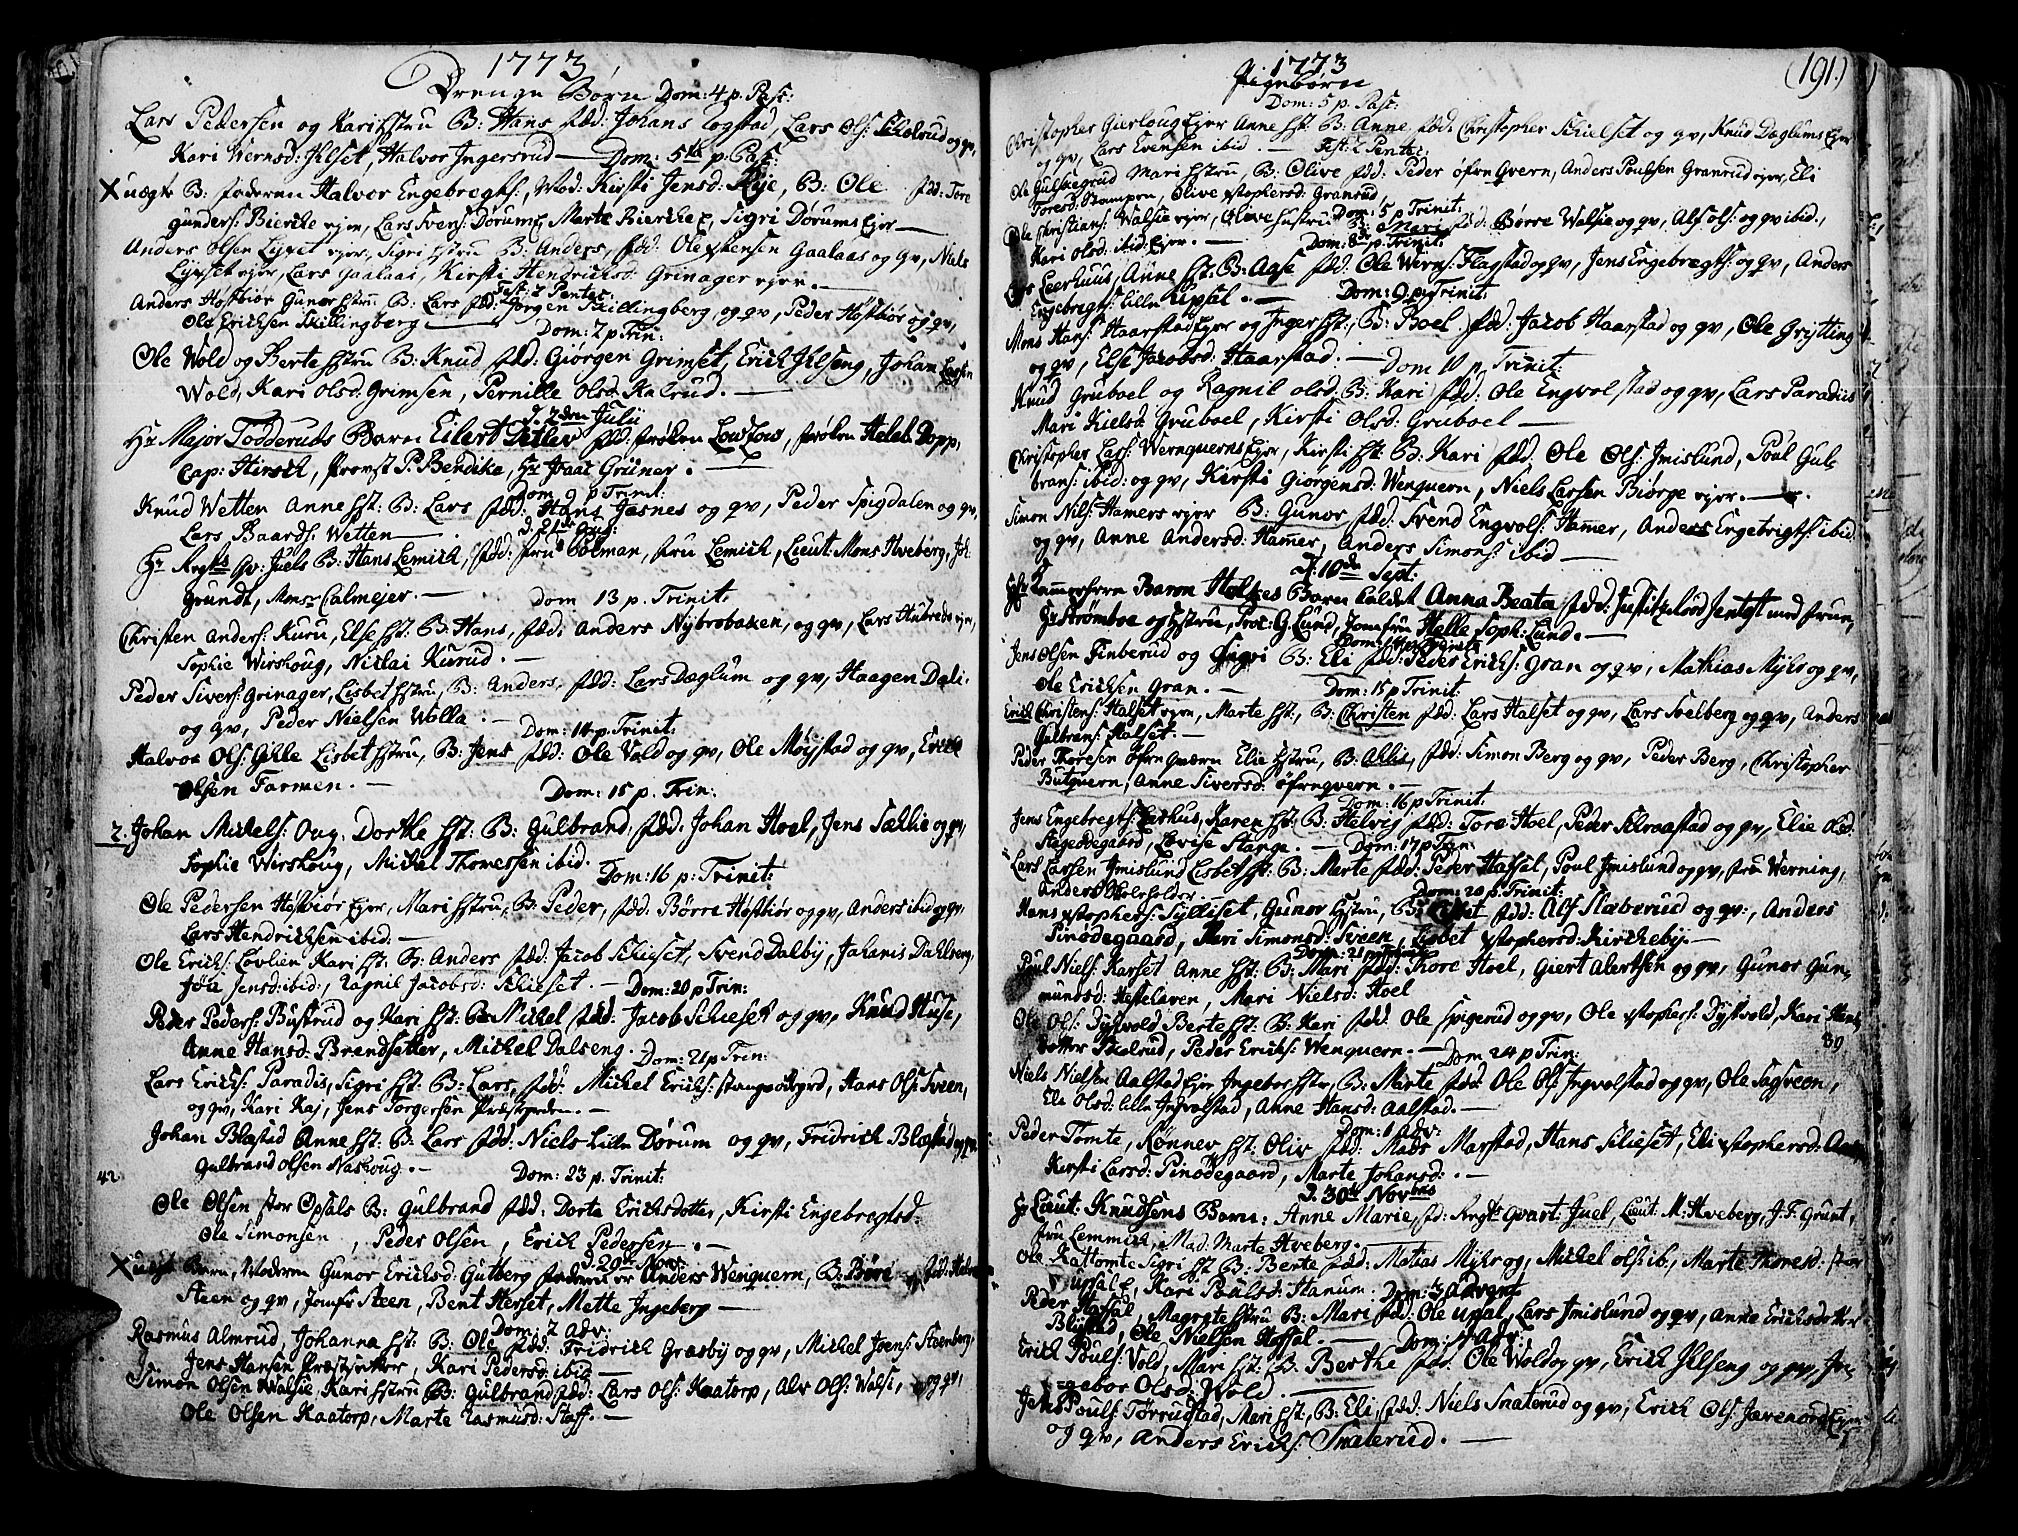 1773
Drenge Børn Dom: 4 p. Pasc:
Lars Pedersen og Kari Hstru B: Hans fdd: Johans Logstad, Lars Ols: Skolrud og qv,
Kari Wernsd: Ihlset, Halvor Ingersrud — Dom: 5te p: Pasc:
uægte B: faderen Halvor Engebregts:, Mod: Kirsti Jensd: Rye, B: Ole fdd: Tore
Gunders: Biercke ejer, Lars Svers: Dorum E, Marte Biercke E, Sigri Dørums Ejer —
Anders Olsen Lyset ejer, Sigri Hstru B: Anders, fdd: Ole Xstensen Gaalaas og qv, Niels
Lyset ejer, Lars Gaalaas, Kirsti Hendricksd: Grinager ejer. —
Fest: 2 Pentec:
Anders Høstbiør Gunor Hstru B: Lars fdd: Jørgen Skillingberg, og qv, Peder Høstbiør og qv,
Ole Ericksen Skillingberg — Dom: 7 p Trin:
Ole Wold og Berte Hstru B: Knud fdd: Giørgen Grimset, Erick Ihlseng, Johan Larsen
Wold, Kari Olsd: Grimsen, Pernille Olsd: Kalrud. —
D. 2den Julii
Hr Major Todderuds Barn Eilert Detlev fdd: frøken Lowzow, frøken Helel Dopp,
Cap: Hirsch, Provst P. Bendike, Hr Isaac Grüner. —
Dom 9 p Trinit:
Knud Wetten Anne Hst: B: Lars fdd: Hans Jasnes og qv, Peder Spigdalen og qv,
Lars Baards: Wetten — .
Hr Regts qv: Juels B: Hans Lemich, fdd: fru Colman, fru Lemich, Lieut: Mons Hveberg, Joh:
Grundt, Mmsr Calmejer. — Dom 13 p. Trinit:
Christen Anders: Kuru, Else Hst: B: Hans, fdd: Anders Nybrobaken, og qv, Lars Aubrede ejer,
Sophie Wirshoug, Niclai Kurud. —
Peder Sivers: Grinager, Lisbet Hstru, B: Anders, fdd: Lars Dæglum og qv, Haagen Dali
og qv, Peder Nielsen Wolla. — Dom: 14 p. Trinit:
Halvor Ols: Gille Lisbet Hstru, B: Jens fdd: Ole Vold og qv, Ole Møystad og qv, Erick
Olsen Farmen. — Dom: 15 p. Trin:
2. Johan Mickels: Oug. Dorthe Hst: B: Gulbrand. fdd: Johan Hoel, Jens Sæhlie og qv,
Sophie Wirshoug, Mickel Thomessen ibid. Dom: 16 p: Trinit:
Ole Pedersen Høstbiør Ejer, Mari Hstru, B: Peder, fdd: Børre Høstbiør og qv, Anders ibid og qv,
Lars Hendricksen ibid: —
Ole Ericks: Lovlien Kari Hst: B: Anders fdd: Jacob Schieset, Svend Dalby, Johanis Dahlberg,
Jøn Jensd: ibid:, Ragnil Jacobsd: Schieset. — Dom: 20 p Trin:
Peder Peders: Bustrud og Kari Hst: B: Mickel fdd: Jacob Schieset og qv, Knud Huse,
Anne Hansd: Brendsetter, Mickel Dalseng. Dom: 21 p Trin:
Lars Ericks: Paradis, Sigri Hst: B: Lars, fdd: Mickel Ericks: Stangeødegrd, Hans Ols: Sveen,
og qv, Kari Kaj, Jens Torgersen Præstgrden. —
Johan Blæstad Anne Hst: B: Lars fdd: Niels Lille Dørum og qv, Fridrich Blæstad og qv,
42. Gulbrand Olsen Nashoug. — Dom: 23 p. Trinit:
Ole Olsen Stor Opsals B: Gulbrand fdd: Dorte Ericksdotter, Kirsti Engebregtsd:
Ole Simonsen, Peder Olsen, Erick Pedersen. —
D. 29de Nov:
uægte Barn, Moderen Gunor Ericksd: Gutberg faderen er Anders Wenquern, B: Børe fdd:
Steen og qv, Jomfr Steen, Bent Herset, Mette Ingeberg —
Dom: 2 Adv:
Rasmus Almrud, Johanna Hst: B: Ole fdd: Fridrich Græsby og qv, Mickel Joens: Steenberg,
Jens Hansen Præstsætter, Kari Pedersd: ibid —
Simon Olsen Walsie, Kari Hstru B: Gulbrand fdd: Lars Ols: Kaatorp, Alv Ols: Walsi, og qv,
Ole Olsen Kaatorp, Marte Rasmusd: Staff. —
(191)
1773
Pigebørn
Dom: 5 p. Pasc:
Christopher Gierloug Ejer Anne Hst: B: Anne, fdd: Christopher Schieset og qv, Knud Dæglums Ejer
og qv, Lars Evensen ibid. — Fest: 2 Pentec:
Ole Gulskegrud Mari Hstru, B: Olive fdd: Peder Øfre Qvern, Anders Poulsen Granrud ejer, Eli
Toresd: Stampen, Olive Xstophersd: Granrud,
Dom: 5 p Trinit:
Ole Christians: Walsie ejer, Olive Hustru B: Mari fdd: Børre Walsie og qv, Als Ols: og qv ibid.,
Kari Olsd: ibid: Ejer. — Dom: 8de p Trinit:
Lars Leerhuus, Anne Hst: B: Aase fdd: Ole Werns: Flagstad og qv, Jens Engebregts: og qv, Anders
Engebregts: Lille Upsal. — Dom: 9 p. Trinit:
Mons Hans: Haarstad Ejer og Inger Hst:, B: Boel fdd: Jacob Haarstad og qv, Ole Grytting
og qv, Else Jacobsd: Haarstad. — Dom 10 p. Trinit:
Knud Gruboel og Ragnil Olsd: B: Kari fdd: Ole Engvolstad og qv, Lars Paradies
Mari Kielsd: Gruboel, Kirsti Olsd: Gruboel —
Christopher Lars: Wernquerns Ejer, Kirsti Hst: B: Kari fdd: Ole Ols: Imislund, Poul Gul-
brans: ibid: og qv, Kirsti Giorgensd: Wenquern, Niels Larsen Biørge ejer. —
Simon Nils: Hamers ejer B: Gunor fdd: Svend Engvols: Hamer, Anders Engebrigts: ibid.
og qv, Anne Andersd: Hamer, Anders Simons: ibid —
D: 10de Sept:
Hr Kammerherre Baron Holkes Barn kaldet Anna Beata fdd: Justitzråd Jentoft med frue,
Hr Strømboe og Hstru, Proc: G. Lund, Jomfru Helle Soph: Lund. —
Jens Olsen Finberud og Sigri B: Eli fdd: Peder Ericks: Gran og qv, Mathias Mykr og qv,
Ole Ericksen Gran. — Dom: 15 p Trinit:
Erick Christens: Halset ejer, Marte Hst:, B: Christen fdd: Lars Halset og qv, Lars Soelberg og qv, Anders
Gulbrans: Halset. —
Peder Thoresen Øfre Qværn Elie Hstru, B: Ahlis, fdd: Simon Berg og qv, Peder Berg, Christopher
Butquern, Anne Siversd: Øfrequern. —
Dom: 16 p Trinit:
Jens Engebregts: Leerhus, Karen Hst: B: Helvig fdd: Tore Hoel, Peder Schraastad og qv, Elie Olsd:
Stageødegaard, Lovise Stange. — Dom: 17 p Trin:
Lars Larsen Imislund Lisbet Hst: B: Marte fdd: Peder Hassel, Poul Imislund og qv, fru Werning,
Anders Welholder. Dom: 20 p. Trinit:
Hans Xstophers: Sylliset, Gunor Hstru, B: Lisbet fdd: Alf Næberud og qv:, Anders
Pinødegaard, Mari Simonsd: Sveen, Lisbet Xstophersd: Kirckeby. —
Dom: 21 p Trinit:
Poul Niels: Karset Anne Hst: B: Mari fdd: Thore Hoel, Giert Alertsen og qv, Gunor Gun-
mundsd: Hestelaven, Mari Nielsd: Hoel
Ole Ols: Dystvold Berte Hst: B: Kari fdd: Ole Spigerud og qv, Ole Xstophers: Dystvold, Kari Hans
dotter Skolrud, Peder Ericks: Wenquern. — Dom 24 p Trin: 39
Niels Nielsen Aalstad Ejer Ingebor Hstr, B: Marte fdd: Ole Ols: Ingvolstad og qv, Ole Sagsveen,
Eli Olsd: Lille Ingvalstad, Anne Hansd: Aalstad. —
Dom: 1 Adv:
Peder Tomte, Rønnev Hst: Oliv fdd: Mads Marstad, Hans Schieset, Eli Xstophersd:
Kirsti Larsd: Pinødegaard, Marte Johansd: . —
D. 30te Novbris
Hr Lieut. Knudsens Barn: Anne Marie, fd: Regts Qvart: Juel, Lieut M: Hveberg, J. F. Grunt,
fru Lemmich, Mad. Marte Hveberg. —
Ole Kattomte Sigri Hst B: Bente fdd: Matias Mykr og, Mickel Ols: ib., Marte Thoresd: Stor
Upsal E, Kari Poulsd: Hanum. Dom: 3 Advent
Peder Hassal, Magrete Hstru B: Mari fdd: Ole Upsal, Lars Imislund og qv, Anne Ericksdotter
Blystad, Ole Nielsen Hassal. — Dom: 4 Adv:
Erick Pouls: Vold, Mari Hst: B: Berthe fdd: Ole Wold og qv, Erick Ihlseng og qv, In-
gebor Olsd: Wold. —
Jens Pouls: Tørrudstad, Mari Hst:, B: Eli, fdd: Niels Snaterud og qv, Erick Ols: Jævenord Ejer
og qv, Anders Ericks: Snaterud. —